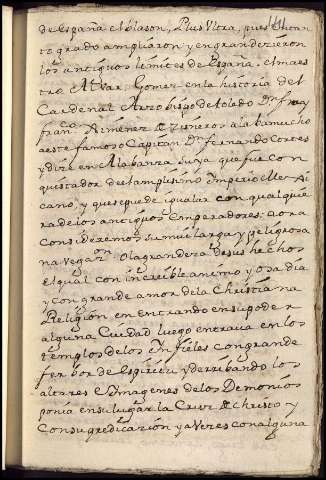 141
de España el blason, Plus Ultra, pues en quan
to grado ampliaron y engrandecieron
los antiguos limites de España. El maes
tro Alvar Gomez en la historia del
Cardenal Arzobispo de toledo Dn fray
franco Ximenez de Zisneros alaba mucho
a este famoso Capitán Dn fernando Cortes
y dize en Alabanza suya que fue con
quistador del amplisimo Imperio Mexi
cano, y que se puede igualar con qualquie
ra de los antiguos Emperadores: aora
consideremos su mui larga y peligrosa
navegazon o la grandeza de sus hechos
el qual con increible animo y osadía
y con grande amor de la Christiana
Religión en entrando en su poder
alguna Ciudad luego entrava en los
templos de los Infieles con grande
ferbor de Espiritu y derribando los
altares e Imagenes de los Demonios
ponia en su lugar la Cruz de Christo y
con su predicazión y a veces con alguna